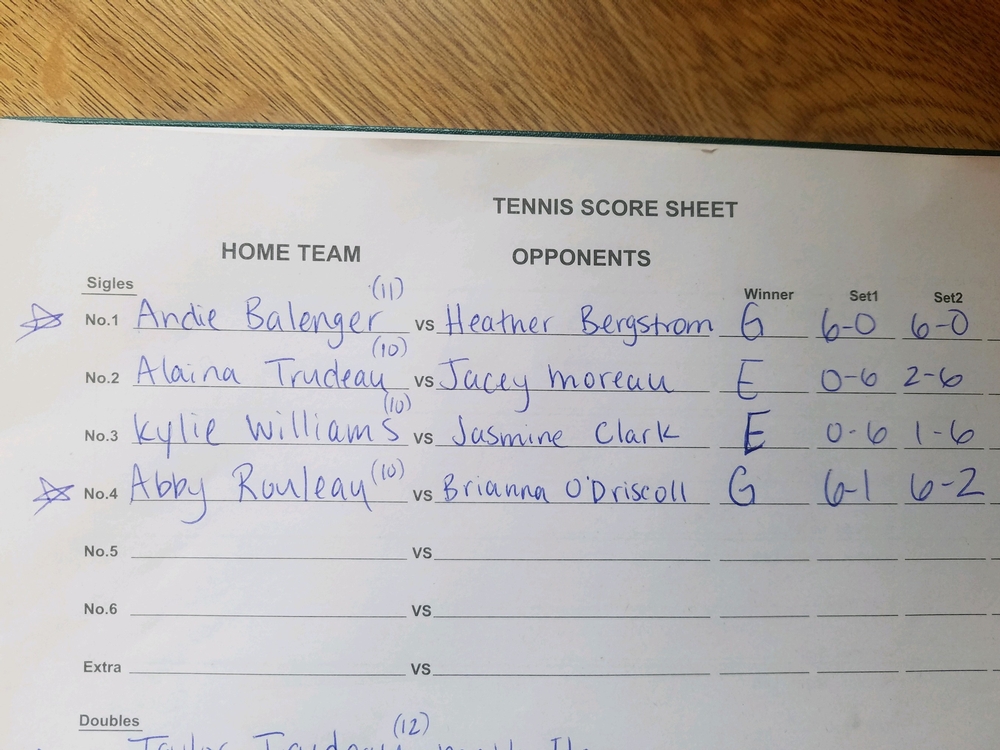 TENNIS SCORE SHEET
HOME TEAM OPPONENTS
Sigles Winner Set1 Set2
No.1 Andie Balenger (11) vs Heather Bergstrom G 6-0 6-0
No.2 Alaina Trudeau (10) vs Jacey Moreau E 0-6 2-6
No.3 Kylie Williams (10) vs Jasmine Clark E 0-6 1-6
No.4 Abby Rouleau (10) vs Brianna O'Driscoll G 6-1 6-2
No.5 vs
No.6 vs
Extra vs
Doubles
(12)